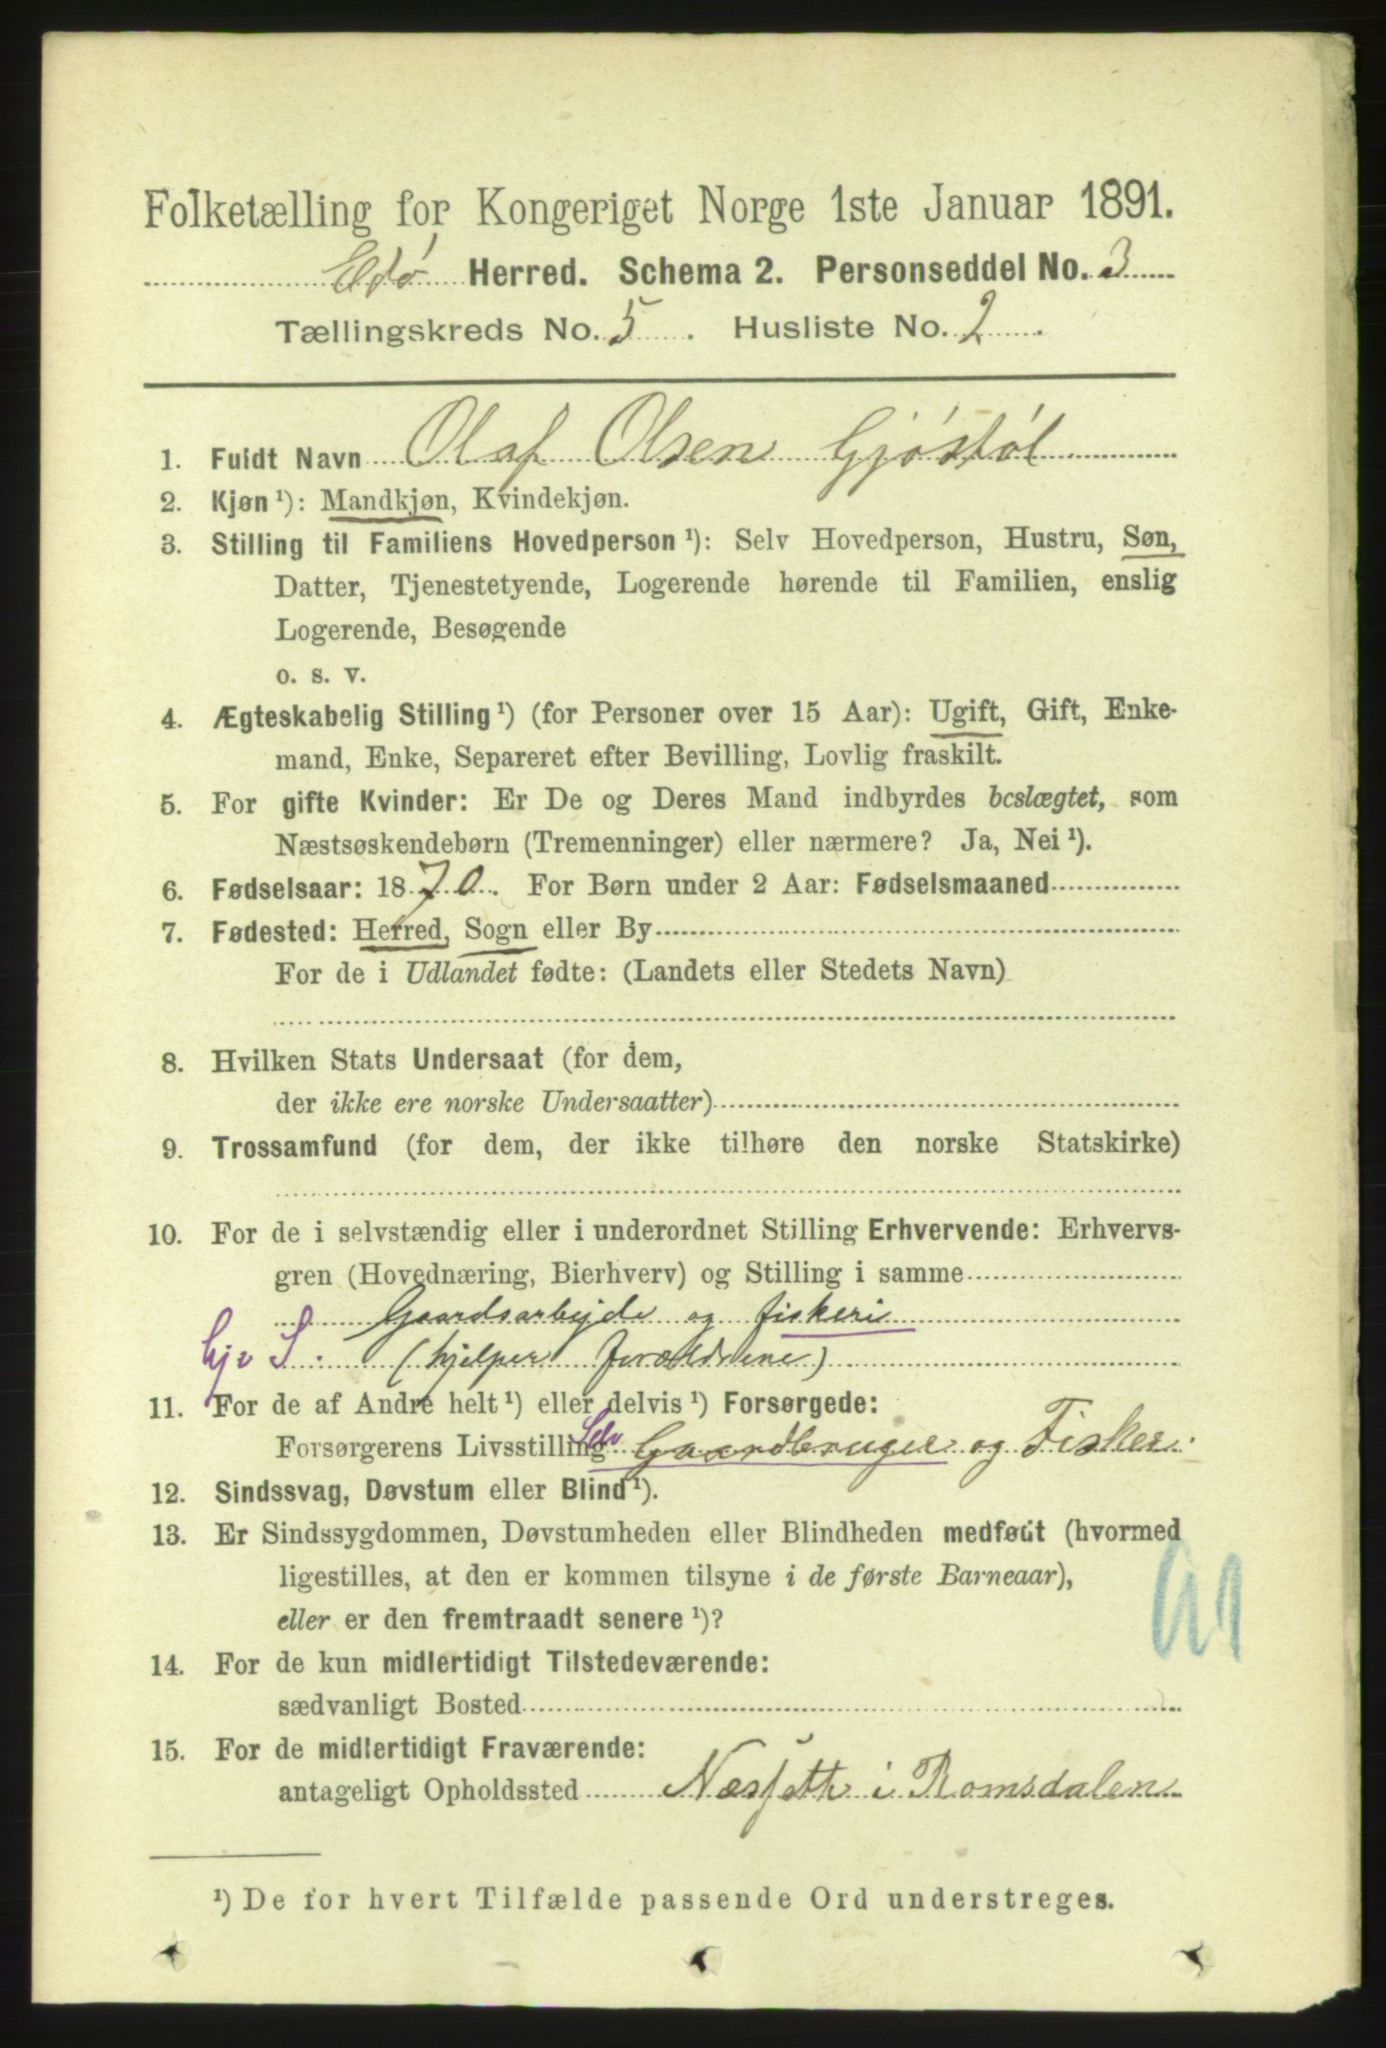 Folketælling for Kongeriget Norge 1ste Januar 1891.
Edø Herred. Schema 2. Personseddel No. 3
Tællingskreds No. 5. Husliste No. 2.
1. Fuldt Navn Olaf Olsen Gjøstøl
2. Kjøn¹): Mandkjøn, Kvindekjøn.
3. Stilling til Familiens Hovedperson¹): Selv Hovedperson, Hustru, Søn,
Datter, Tjenestetyende, Logerende hørende til Familien, enslig
Logerende, Besøgende
o. s. v.
4. Ægteskabelig Stilling¹) (for Personer over 15 Aar): Ugift, Gift, Enke-
mand, Enke, Separeret efter Bevilling, Lovlig fraskilt.
5. For gifte Kvinder: Er De og Deres Mand indbyrdes beslægtet, som
Næstsøskendebørn (Tremenninger) eller nærmere? Ja, Nei¹).
6. Fødselsaar: 1870. For Børn under 2 Aar: Fødselsmaaned
7. Fødested: Herred, Sogn eller By
For de i Udlandet fødte: (Landets eller Stedets Navn)
8. Hvilken Stats Undersaat (for dem,
der ikke ere norske Undersaatter)
9. Trossamfund (for dem, der ikke tilhøre den norske Statskirke)
10. For de i selvstændig eller i underordnet Stilling Erhvervende: Erhvervs-
gren (Hovednæring, Bierhverv) og Stilling i samme
Gaardsarbejde og fiskeri
hj S. (hjelper forældrene)
11. For de af Andre helt¹) eller delvis¹) Forsørgede:
Forsørgerens Livsstilling Selv Gaardbruger og Fisker.
12. Sindssvag, Døvstum eller Blind¹).
13. Er Sindssygdommen, Døvstumheden eller Blindheden medfødt (hvormed
ligestilles, at den er kommen tilsyne i de første Barneaar),
eller er den fremtraadt senere¹)?
14. For de kun midlertidigt Tilstedeværende:
sædvanligt Bosted
15. For de midlertidigt Fraværende:
antageligt Opholdssted i Romsdalen
¹) De for hvert Tilfælde passende Ord understreges.